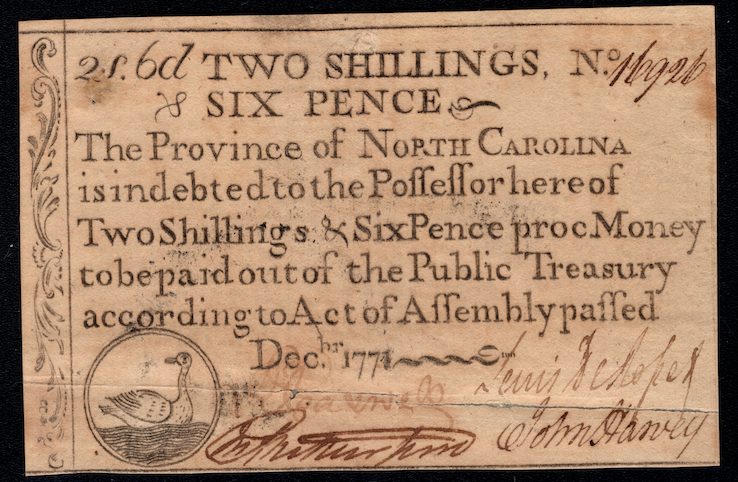 2s. 6d TWO SHILLINGS, No. 16926
& SIX PENCE
The Province of NORTH CAROLINA
is indebted to the Poſſeſſor hereof
Two Shillings & Six Pence proc Money
to be paid out of the Public Treasury
according to Act of Aſſembly paſſed
Dec.br 1771
Lewis De Rosset
John Harvey